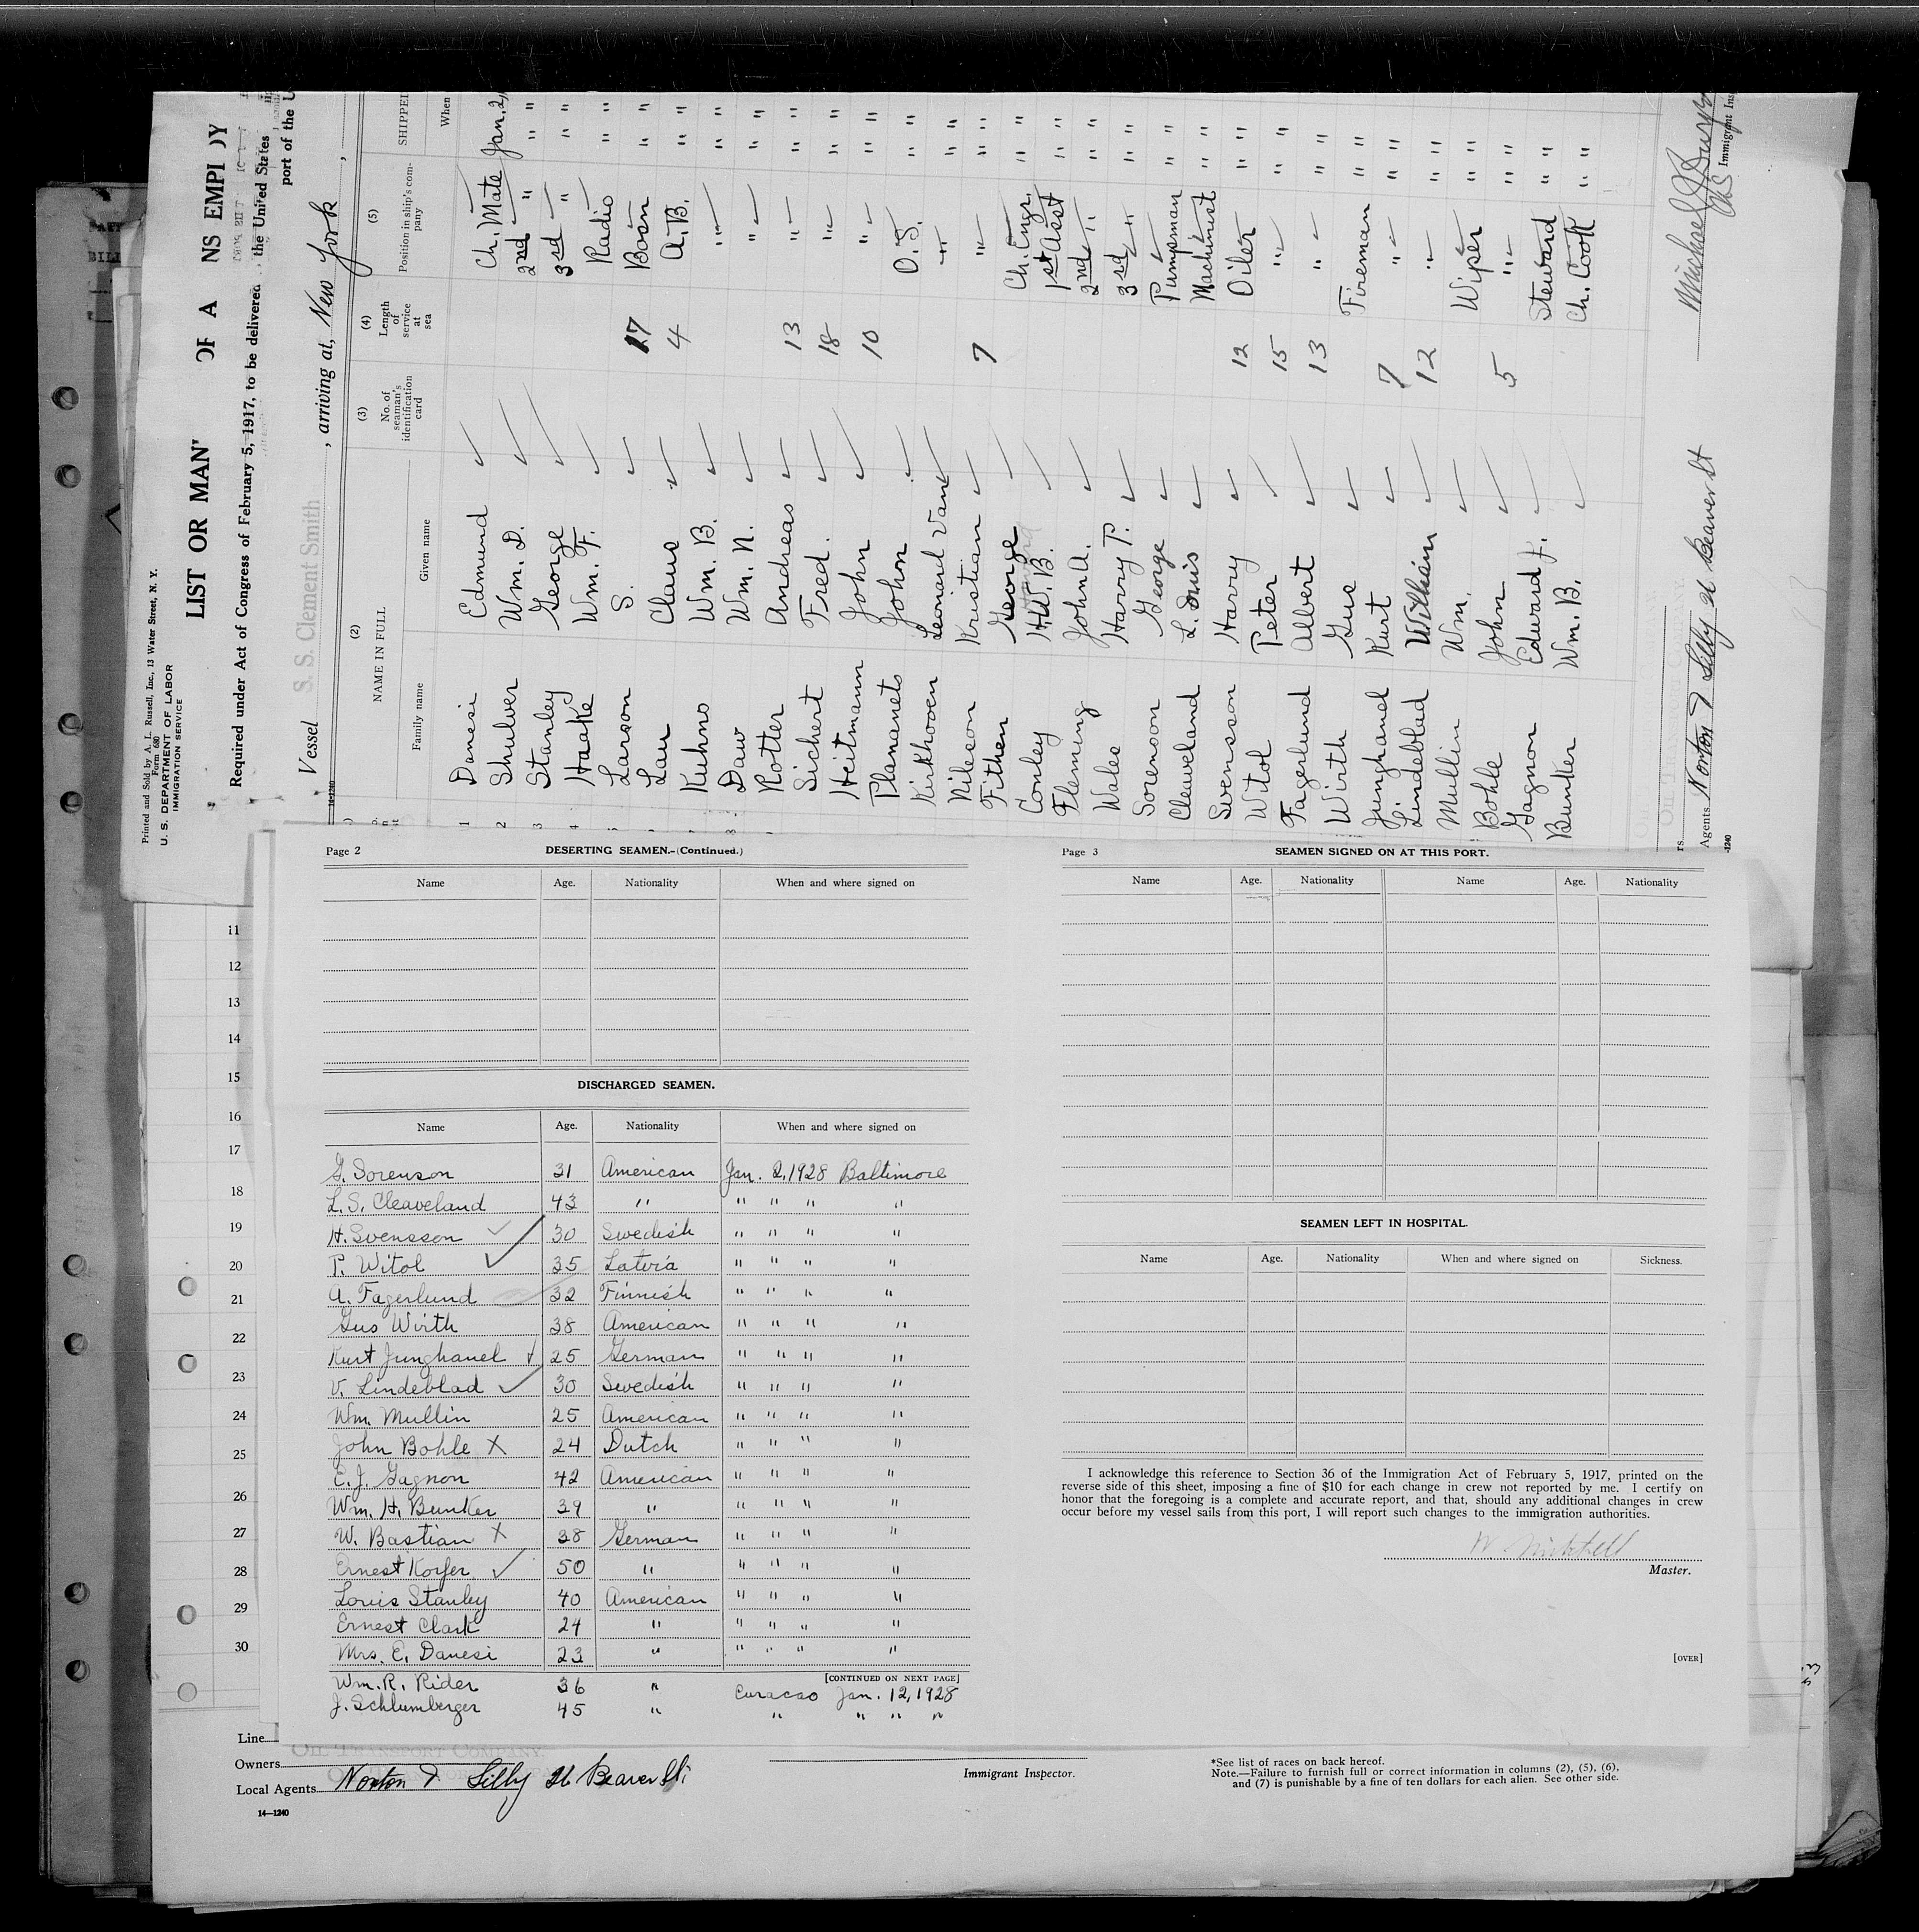 Printed and Sold by A. L. Russell, Inc., 13 Water Street, N. Y.
Form 680
U. S. DEPARTMENT OF LABOR
IMMIGRATION SERVICE
LIST OR MAN
OF A
NS EMPL
Required under Act of Congress of February 5, 1917, to be delivered
the United States
port of the U
Vessel S. S. Clement Smith, arriving at, New York,
14-1240
(2)
NAME IN FULL
(3)
No. of seaman's identification card
(4)
Length of service at sea
(5)
Position in ship's company
SHIPPED
Family name
Given name
When
1 Danesi Edmund Ch. Mate Jan. 2,
2 Shulver Wm. D. 2nd " " "
3 Stanley George 3rd " " "
4 Haake Wm. F. Radio " "
Larson S. 17 Bosn " "
Lau Claus 4 A.B. " "
Kuhns Wm. B. " " "
Daw Wm. N. " " "
Rotter Andreas 13 " " "
Sichert Fred. 18 " " "
Heitmann John 10 " " "
Plananets John O.S. " "
Kirkhoven Leonard Van " " "
Nilsson Kristian 7 " " "
Fithen George Ch. Engr. " "
Conley H.W.B. 1st Asst " "
Fleming John A. 2nd " " "
Wales Harry P. 3rd " " "
Sorenson George Pumpman " "
Cleaveland L. Suis Machinist " "
Svensson Harry 12 Oiler " "
Witol Peter 15 " " "
Fagerlund Albert 13 " " "
Wirth Gus Fireman " "
Junghanel Kurt 7 " " "
Lindeblad William 12 " " "
Mullin Wm. Wiper " "
Bohle John 5 " " "
Gagnon Edward J. Steward " "
Bunker Wm. B. Ch. Cook " "
Agents Norton & Lilly 26 Beaver St
Immigrant Ins
Page 2
DESERTING SEAMEN.-(Continued.)
Name Age. Nationality When and where signed on
DISCHARGED SEAMEN.
Name Age. Nationality When and where signed on
G. Sorenson 31 American Jan. 2, 1928 Baltimore
L. S. Cleaveland 43 " " " " "
H. Svensson 30 Swedish " " " "
P. Witol 35 Latvia " " " "
A. Fagerlund 32 Finnish " " " "
Gus Wirth 38 American " " " "
Kurt Junghanel 25 German " " " "
V. Lindeblad 30 Swedish " " " "
Wm. Mullin 25 American " " " "
John Bohle X 24 Dutch " " " "
E. J. Gagnon 42 American " " " "
Wm. H. Bunker 39 " " " " "
W. Bastian X 38 German " " " "
Ernest Korfer 50 " " " " "
Louis Stanley 40 American " " " "
Ernest Clark 24 " " " " "
Mrs. E. Danesi 23 " " " " "
[CONTINUED ON NEXT PAGE]
Wm. R. Rider 36 " Curacao Jan. 12, 1928
J. Schlumberger 45 " " " " "
Page 3
SEAMEN SIGNED ON AT THIS PORT.
Name Age. Nationality Name Age. Nationality
SEAMEN LEFT IN HOSPITAL.
Name Age. Nationality When and where signed on Sickness.
I acknowledge this reference to Section 36 of the Immigration Act of February 5, 1917, printed on the
reverse side of this sheet, imposing a fine of $10 for each change in crew not reported by me. I certify on
honor that the foregoing is a complete and accurate report, and that, should any additional changes in crew
occur before my vessel sails from this port, I will report such changes to the immigration authorities.
Master.
[OVER]
11
12
13
14
15
16
17
18
19
20
21
22
23
24
25
26
27
28
29
30
Line
OIL TRANSPORT COMPANY.
Owners
Local Agents Norton & Lilly 26 Beaver St.
14—1240
Immigrant Inspector.
*See list of races on back hereof.
Note.—Failure to furnish full or correct information in columns (2), (5), (6),
and (7) is punishable by a fine of ten dollars for each alien. See other side.